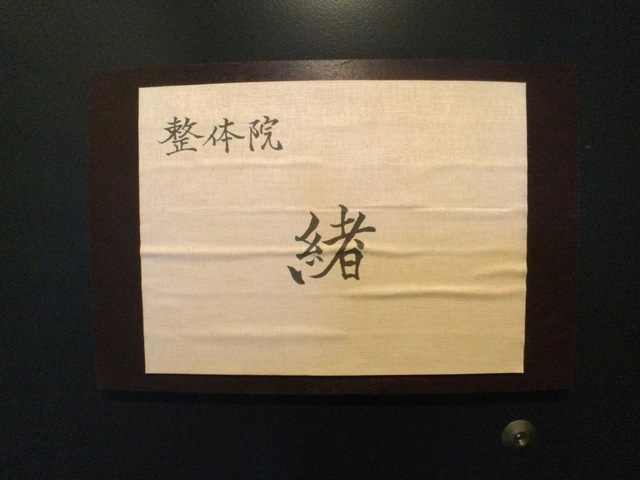 整体院
緒